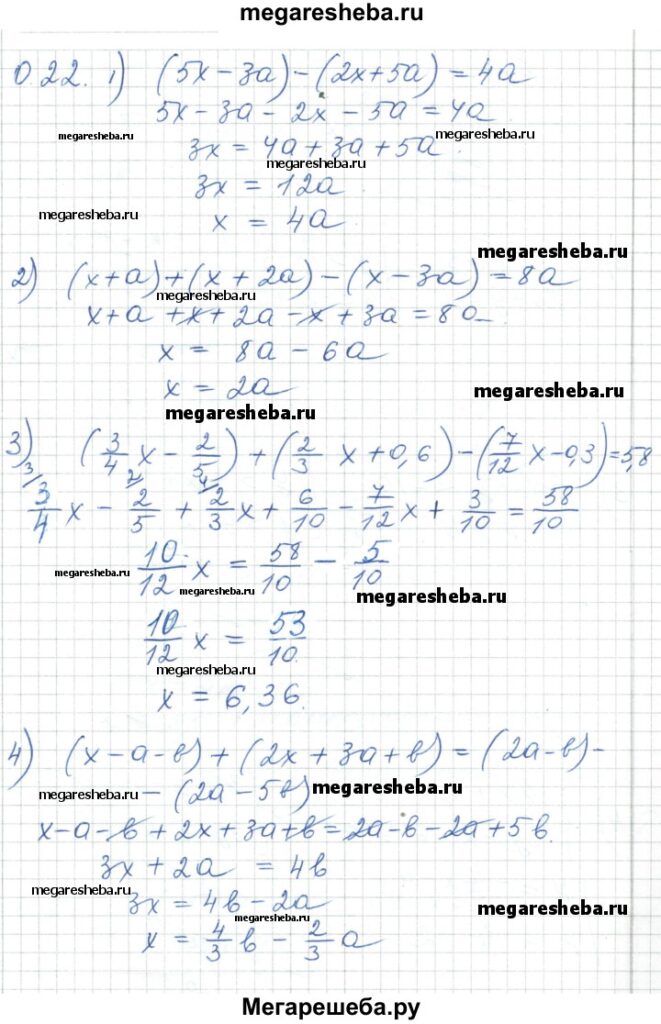 megaresheba.ru
0.22. 1) (5x - 3a) - (2x + 5a) = 4a
5x - 3a - 2x - 5a = 4a
megaresheba.ru megaresheba.ru
3x = 4a + 3a + 5a
megaresheba.ru
3x = 12a
megaresheba.ru
x = 4a
megaresheba.ru
2) (x + a) + (x + 2a) - (x - 3a) = 8a
megaresheba.ru
x + a + x + 2a - x + 3a = 8a
x = 8a - 6a
x = 2a
megaresheba.ru
megaresheba.ru
3) (3/4 x - 2/5) + (2/3 x + 0,6) - (7/12 x - 0,3) = 5,8
3/4 x - 2/5 + 2/3 x + 6/10 - 7/12 x + 3/10 = 58/10
10/12 x = 58/10 - 5/10
megaresheba.ru megaresheba.ru
megaresheba.ru
10/12 x = 53/10
megaresheba.ru
x = 6,36.
4) (x - a - b) + (2x + 3a + b) = (2a - b) -
megaresheba.ru - (2a - 5b) megaresheba.ru
x - a - b + 2x + 3a + b = 2a - b - 2a + 5b
3x + 2a = 4b
megaresheba.ru
3x = 4b - 2a
megaresheba.ru
megaresheba.ru
x = 4/3 b - 2/3 a
Мегарешеба.ру